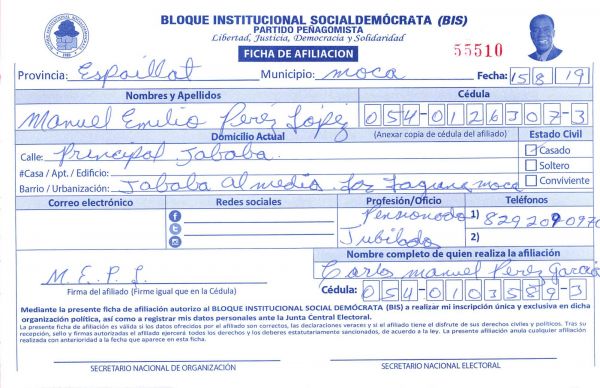 BLOQUE INSTITUCIONAL SOCIALDEMÓCRATA (BIS)
PARTIDO PEÑAGOMISTA
Libertad, Justicia, Democracia y Solidaridad
FICHA DE AFILIACION
55510
Provincia: Espaillat Municipio: moca Fecha: 15 8 19
Nombres y Apellidos Cédula
Manuel Emilio Peréz López 054-0126307-3
Domicilio Actual (Anexar copia de cédula del afiliado) Estado Civil
Calle: Principal Jababa Casado
#Casa / Apt. / Edificio: Soltero
Barrio / Urbanización: Jababa al medio. Laguna moca Conviviente
Correo electrónico Redes sociales Profesión/Oficio Teléfonos
Pensionado 1) 829 209 0970
Jubilado 2)
Nombre completo de quien realiza la afiliación
M. E. P. L. Carlos manuel Perez Garcia
Firma del afiliado (Firme igual que en la Cédula) Cédula: 054-0103589-3
Mediante la presente ficha de afiliación autorizo al BLOQUE INSTITUCIONAL SOCIAL DEMÓCRATA (BIS) a realizar mi inscripción única y exclusiva en dicha
organización política, así como a registrar mis datos personales ante la Junta Central Electoral.
La presente ficha de afiliación es válida si los datos ofrecidos por el afiliado son correctos, las declaraciones veraces y si el afiliado tiene el disfrute de sus derechos civiles y políticos. Tras su
recepción, sello y firmas autorizadas el afiliado ejercerá todos los derechos y los deberes estatutariamente sancionados, de acuerdo a la ley. La presente afiliación anula cualquier afiliación
realizada con anterioridad a la fecha que aparece en esta ficha.
SECRETARIO NACIONAL DE ORGANIZACIÓN SECRETARIO NACIONAL ELECTORAL